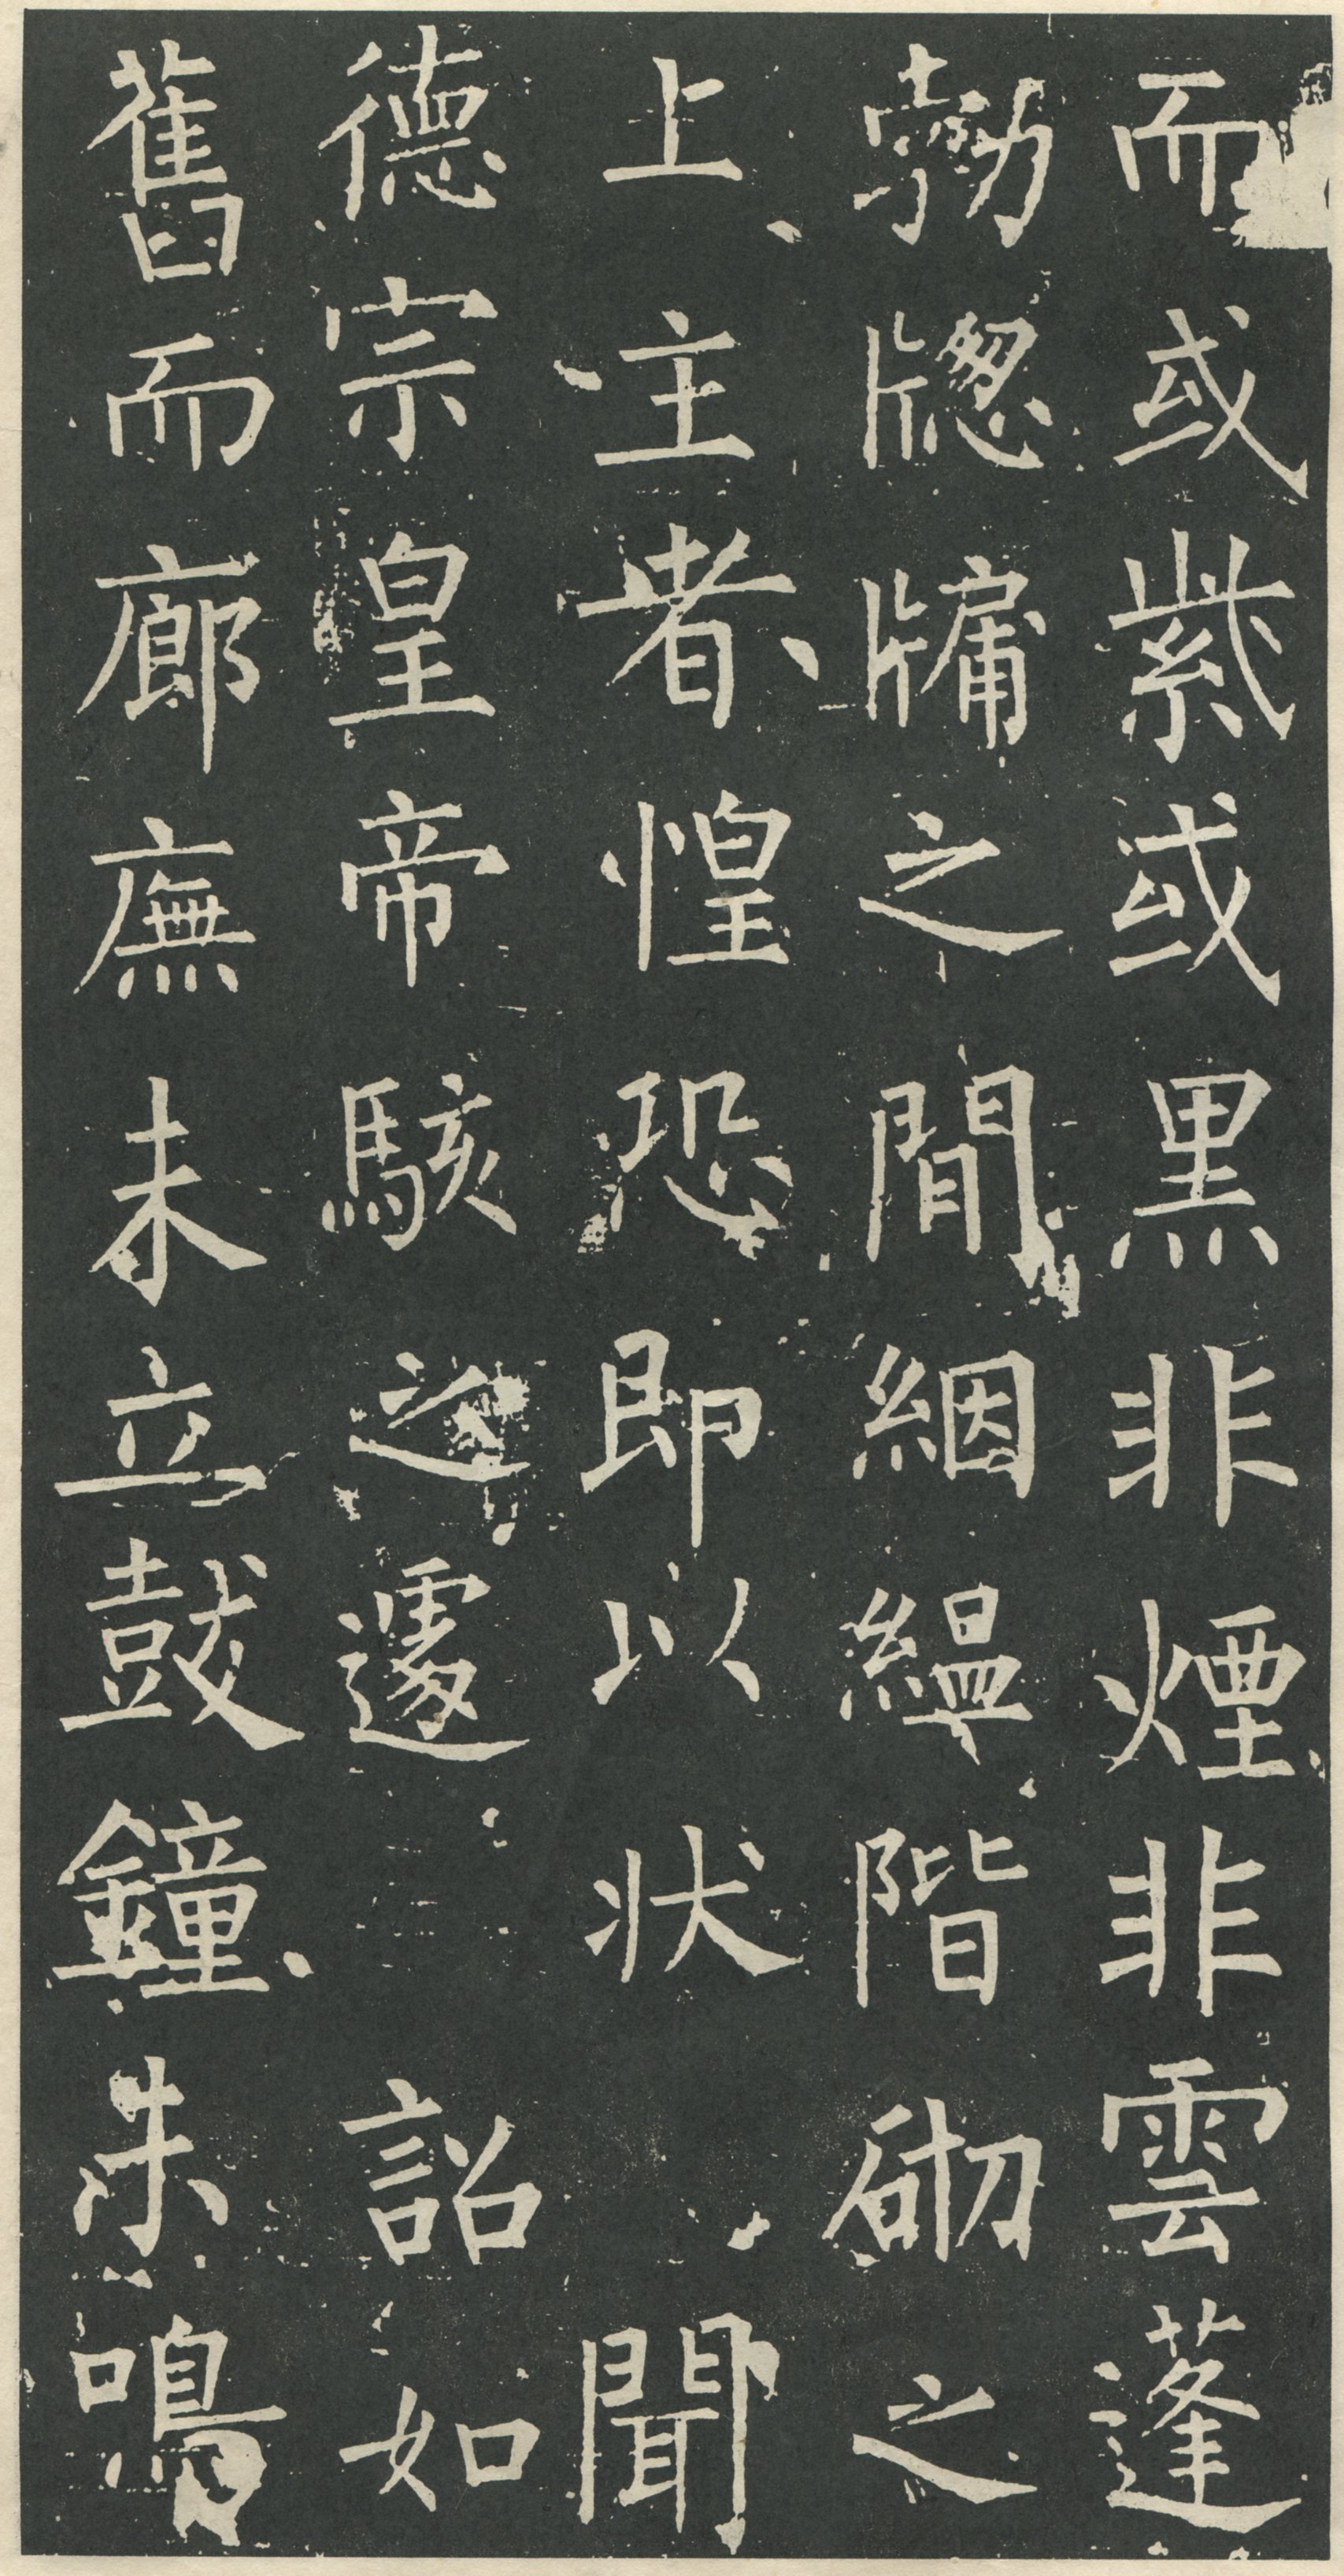 而或紫或黑非煙非雲蓬
勃牎牖之間絪緼階砌之
上主者惶恐即以状聞
德宗皇帝駭之遽詔如
舊而廊廡未立鼓鐘未鳴